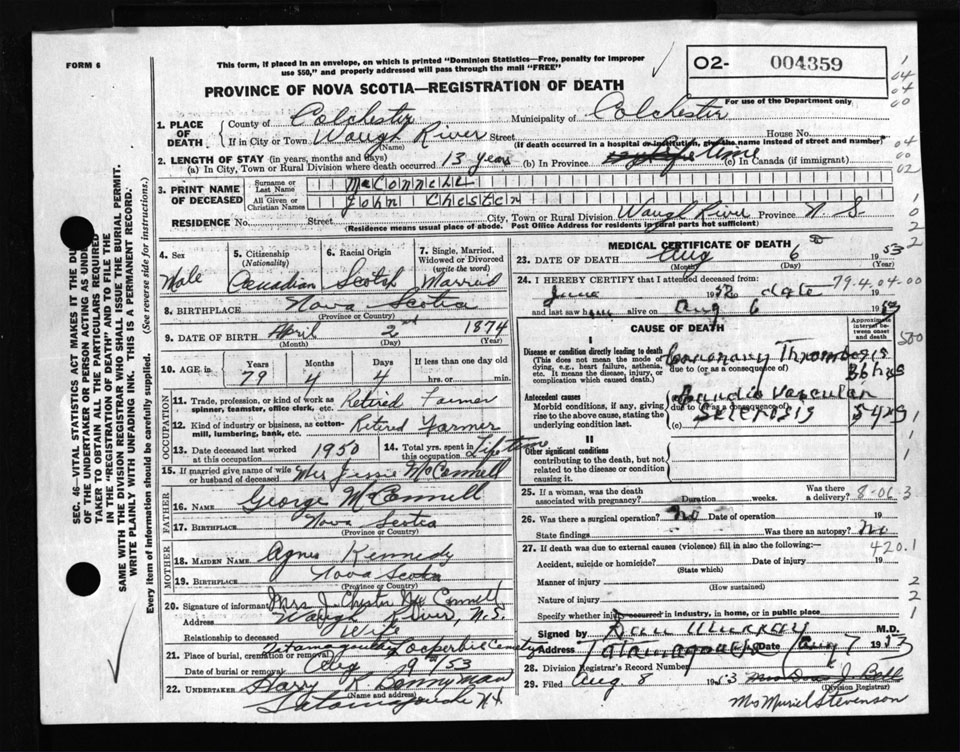 FORM 6
This form, if placed in an envelope, on which is printed "Dominion Statistics—Free, penalty for improper
use $50," and properly addressed will pass through the mail "FREE"
O2- 004359
PROVINCE OF NOVA SCOTIA—REGISTRATION OF DEATH
For use of the Department only
1. PLACE OF DEATH
County of Colchester Municipality of Colchester
If in City or Town Waugh River Street House No.
(Name) (If death occurred in a hospital or institution, give the name instead of street and number)
2. LENGTH OF STAY (in years, months and days)
(a) In City, Town or Rural Division where death occurred 13 years (b) In Province Life time (c) In Canada (if immigrant)
3. PRINT NAME OF DECEASED
Surname or Last Name McConnell
All Given or Christian Names John Chester
RESIDENCE No. Street City, Town or Rural Division Waugh River Province N S
(Residence means usual place of abode. Post Office Address for residents in rural parts not sufficient)
4. Sex Male
5. Citizenship (Nationality) Canadian
6. Racial Origin Scotch
7. Single, Married, Widowed or Divorced (write the word) Married
8. BIRTHPLACE Nova Scotia
(Province or Country)
9. DATE OF BIRTH April 2nd 1874
(Month) (Day) (Year)
10. AGE in Years Months Days If less than one day old
79 4 4 hrs. or min.
OCCUPATION
11. Trade, profession, or kind of work as spinner, teamster, office clerk, etc. Retired Farmer
12. Kind of industry or business, as cotton-mill, lumbering, bank, etc. Retired Farmer
13. Date deceased last worked at this occupation 1950
14. Total yrs. spent in this occupation Lifetime
15. If married give name of wife or husband of deceased Mrs Jessie McConnell
FATHER
16. NAME George McConnell
17. BIRTHPLACE Nova Scotia
(Province or Country)
MOTHER
18. MAIDEN NAME Agnes Kennedy
19. BIRTHPLACE Nova Scotia
(Province or Country)
20. Signature of informant Mrs J. Chester McConnell
Address Waugh River, N.S.
Relationship to deceased Wife
21. Place of burial, cremation or removal Tatamagouche Cemetery
Date of burial or removal Aug 9th/53
22. UNDERTAKER Harry K. Bonnyman
(Name and address)
Tatamagouche N.S.
MEDICAL CERTIFICATE OF DEATH
23. DATE OF DEATH Aug 6 1953
(Month) (Day) (Year)
24. I HEREBY CERTIFY that I attended deceased from:
June 19 to date 19
79.4.04.00
and last saw h alive on Aug 6 1953
CAUSE OF DEATH
Approximate interval between onset and death
I
Disease or condition directly leading to death
(This does not mean the mode of dying, e.g., heart failure, asthenia, etc. It means the disease, injury, or complication which caused death.)
Coronary Thrombosis
due to (or as a consequence of) 36 hrs
Antecedent causes
Morbid conditions, if any, giving rise to the above cause, stating the underlying condition last.
Cardio vascular
due to (or as a consequence of)
Sclerosis 5 yrs
(c)
II
Other significant conditions
contributing to the death, but not related to the disease or condition causing it.
25. If a woman, was the death associated with pregnancy? Duration weeks. Was there a delivery?
8-06.3
26. Was there a surgical operation? No Date of operation 19
State findings Was there an autopsy? No
27. If death was due to external causes (violence) fill in also the following:—
420.1
Accident, suicide or homicide? Date of injury 19
(State which)
Manner of injury
(How sustained)
Nature of injury
Specify whether injury occurred in industry, in home, or in public place
Signed by Dan Murray M.D.
Address Tatamagouche Date Aug 7 1953
28. Division Registrar's Record Number
29. Filed Aug. 8 1953 Mrs J. Bell
(Division Registrar)
Mrs Muriel Stevenson
SEC. 46—VITAL STATISTICS ACT MAKES IT THE DUTY
OF THE UNDERTAKER OR PERSON ACTING AS UNDER-
TAKER TO OBTAIN ALL THE PARTICULARS REQUIRED
IN THE "REGISTRATION OF DEATH" AND TO FILE THE
SAME WITH THE DIVISION REGISTRAR WHO SHALL ISSUE THE BURIAL PERMIT.
WRITE PLAINLY WITH UNFADING INK. THIS IS A PERMANENT RECORD.
Every item of information should be carefully supplied. (See reverse side for instructions.)